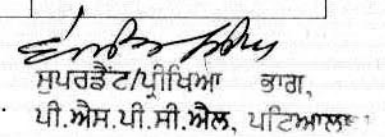 ਸੁਪਰਡੈਂਟ/ਪ੍ਰੀਖਿਆ ਭਾਗ,
ਪੀ.ਐਸ.ਪੀ.ਸੀ.ਐਲ, ਪਟਿਆਲਾ